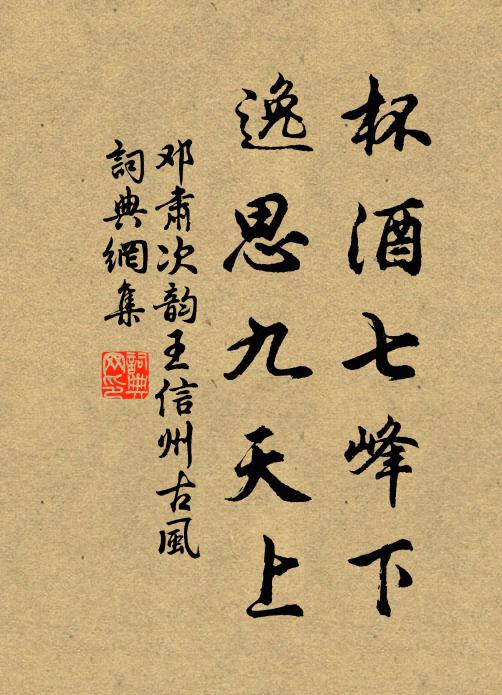 杯酒七峰下
逸思九天上
邓肅次韵王信州古風
詞典網集
詞典网印